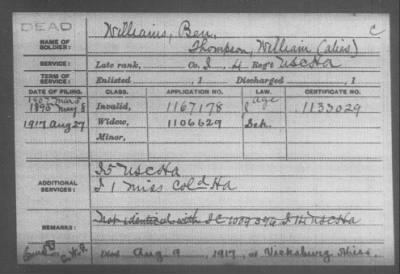 DEAD
C
NAME OF SOLDIER: Williams, Ben.
Thompson, William (alias)
SERVICE: Late rank, Co. I, 4 Reg't USCHa
TERM OF SERVICE: Enlisted , 1 Discharged , 1
DATE OF FILING. CLASS. APPLICATION NO. LAW. CERTIFICATE NO.
1895 Invalid, 1167178 age 1133029
1917 Aug 27 Widow, 1106629
Minor,
ADDITIONAL SERVICES: I 5 USCHa
I 1 Miss Cold Ha
REMARKS: Not identical with
Died Aug. 9, 1917, at Vicksburg Miss.